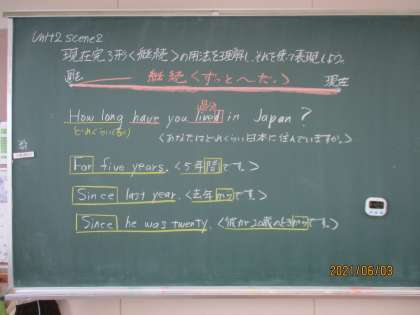 Unit2 scene2
現在完了形<継続>の用法を理解し、それを使って表現しよう。
過去 継続<ずっと~だ。> 現在
過分
How long have you lived in Japan?
どれくらい(長く) <あなたはどれくらい日本に住んでいますか。>
For five years. <5年間です。>
Since last year. <去年からです。>
Since he was twenty. <彼が20歳のときからです。>
2021/06/03